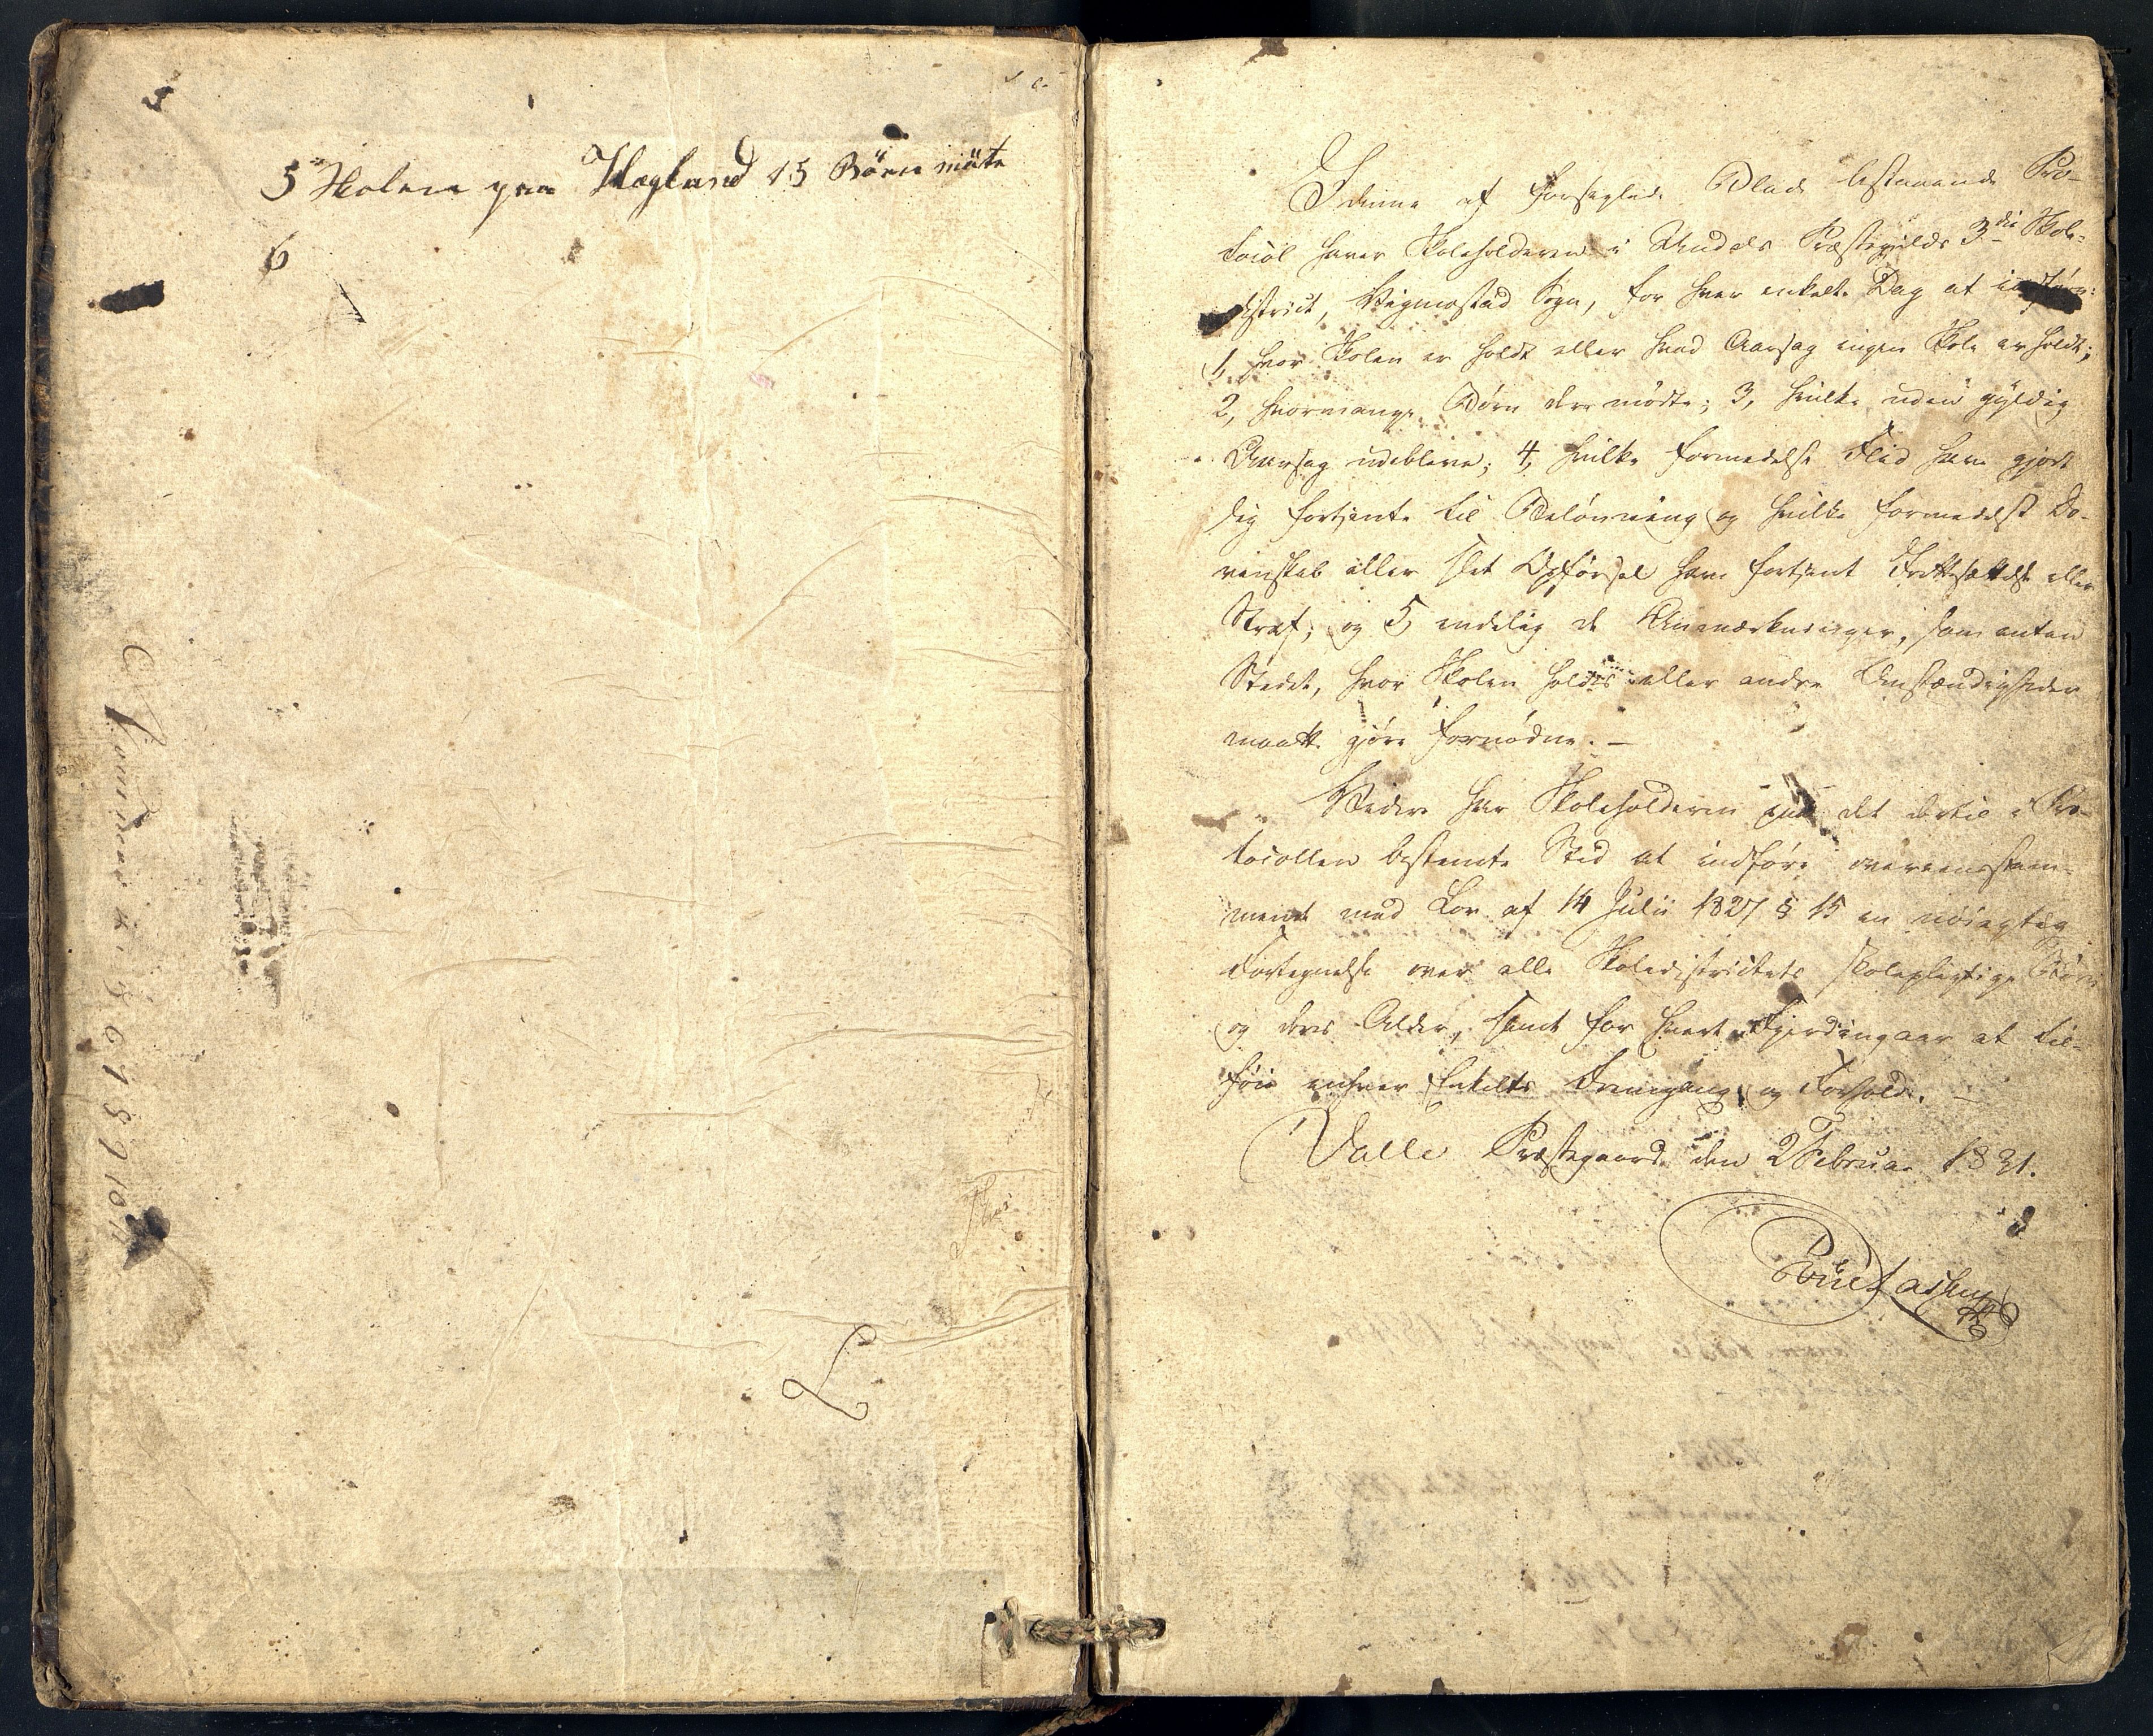 5 Skolen paa Haglund 15 Børn mötte
6
I denne af forseglede Blade bestaaende Pro-
tocol haver Skoleholderen i Undals Præstegilds 3die Skole-
district, Vigmostad Sogn, for hver enkelt Dag at indføre:
1, hvor Skolen er holdt eller hvad Aarsag ingen Skole er holdt;
2, hvormange Børn der mødte; 3, hvilke uden gyldig
Aarsag udebleve; 4, hvilke formedelst Flid have gjort
sig fortjente til Belønning og hvilke formedelst Do-
venskab eller slet Opførsel have fortjent Irettesættelse eller
Straf; og 5, endelig de Anmærkninger, som enten
Stedet, hvor Skolen holdes eller andre Omstændigheder
maatte gjøre fornødne. —
Videre har Skoleholderen paa det dertil i Pro-
tocollen bestemte Sted at indføre overeensstem-
mende med Lov af 14 Julii 1827 § 15 en nøiagtig
Fortegnelse over alle Skoledistrictets skolepligtige Børn
og deres Alder, samt for hvert Fjerdingaar at til-
føie enhver Enkelts Fremgang og Forhold. —
Valle Præstegaard den 2 Februar 1831.